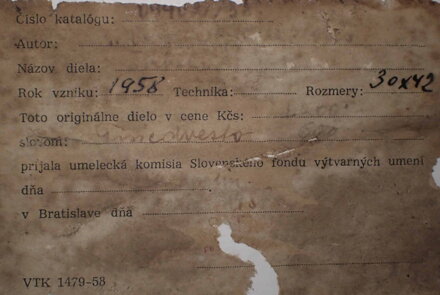 Číslo katalógu:
Autor:
Názov diela:
Rok vzniku: 1958 Technika: Rozmery: 30x42
Toto originálne dielo v cene Kčs:
slovom:
prijala umelecká komisia Slovenského fondu výtvarných umení
dňa
v Bratislave dňa
VTK 1479-58